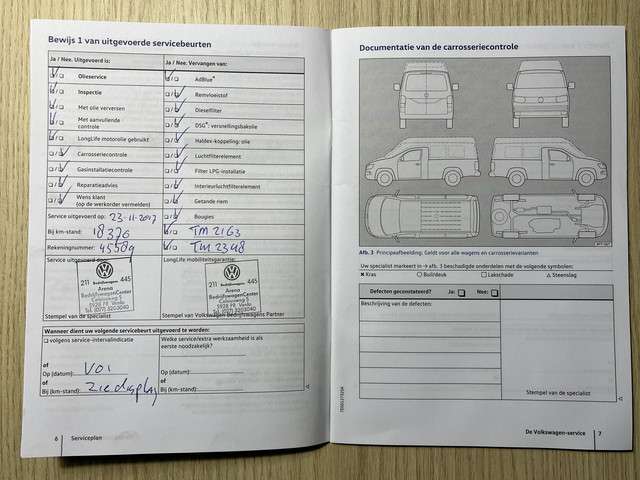 Bewijs 1 van uitgevoerde servicebeurten
Ja / Nee. Uitgevoerd is:
Olieservice
Inspectie
Met olie verversen
Met aanvullende
controle
LongLife motorolie gebruikt
Carrosseriecontrole
Gasinstallatiecontrole
Reparatieadvies
Wens klant
(op de werkorder vermelden)
Service uitgevoerd op: 23-11-2017
Bij km-stand: 18376
Rekeningnummer: 45589
Ja / Nee. Vervangen van:
AdBlue®
Remvloeistof
Dieselfilter
DSG®: versnellingsbakolie
Haldex-koppeling: olie
Luchtfilterelement
Filter LPG-installatie
Interieurluchtfilterelement
Getande riem
Bougies
TM 2163
TM 2348
Service uitgevoerd door:
211 445
Arena
BedrijfswagenCenter
5928 PR Venlo
Tel. (077) 3203040
Stempel van de specialist
LongLife mobiliteitsgarantie:
211 445
Arena
BedrijfswagenCenter
5928 PR Venlo
Tel. (077) 3203040
Stempel van Volkswagen Bedrijfswagens Partner
Wanneer dient uw volgende servicebeurt uitgevoerd te worden:
volgens service-intervalindicatie
of
Op (datum): VOI
of
Bij (km-stand): Zie display
Welke service/extra werkzaamheid is als
eerste noodzakelijk?
of
Op (datum):
of
Bij (km-stand):
6 Serviceplan
Documentatie van de carrosseriecontrole
Afb. 3 Principeafbeelding: Geldt voor alle wagens en carrosserievarianten
Uw specialist markeert in → afb. 3 beschadigde onderdelen met de volgende symbolen:
✕ Kras ○ Buil/deuk □ Lakschade △ Steenslag
Defecten geconstateerd? Ja: Nee:
Beschrijving van de defecten:
Stempel van de specialist
De Volkswagen-service 7